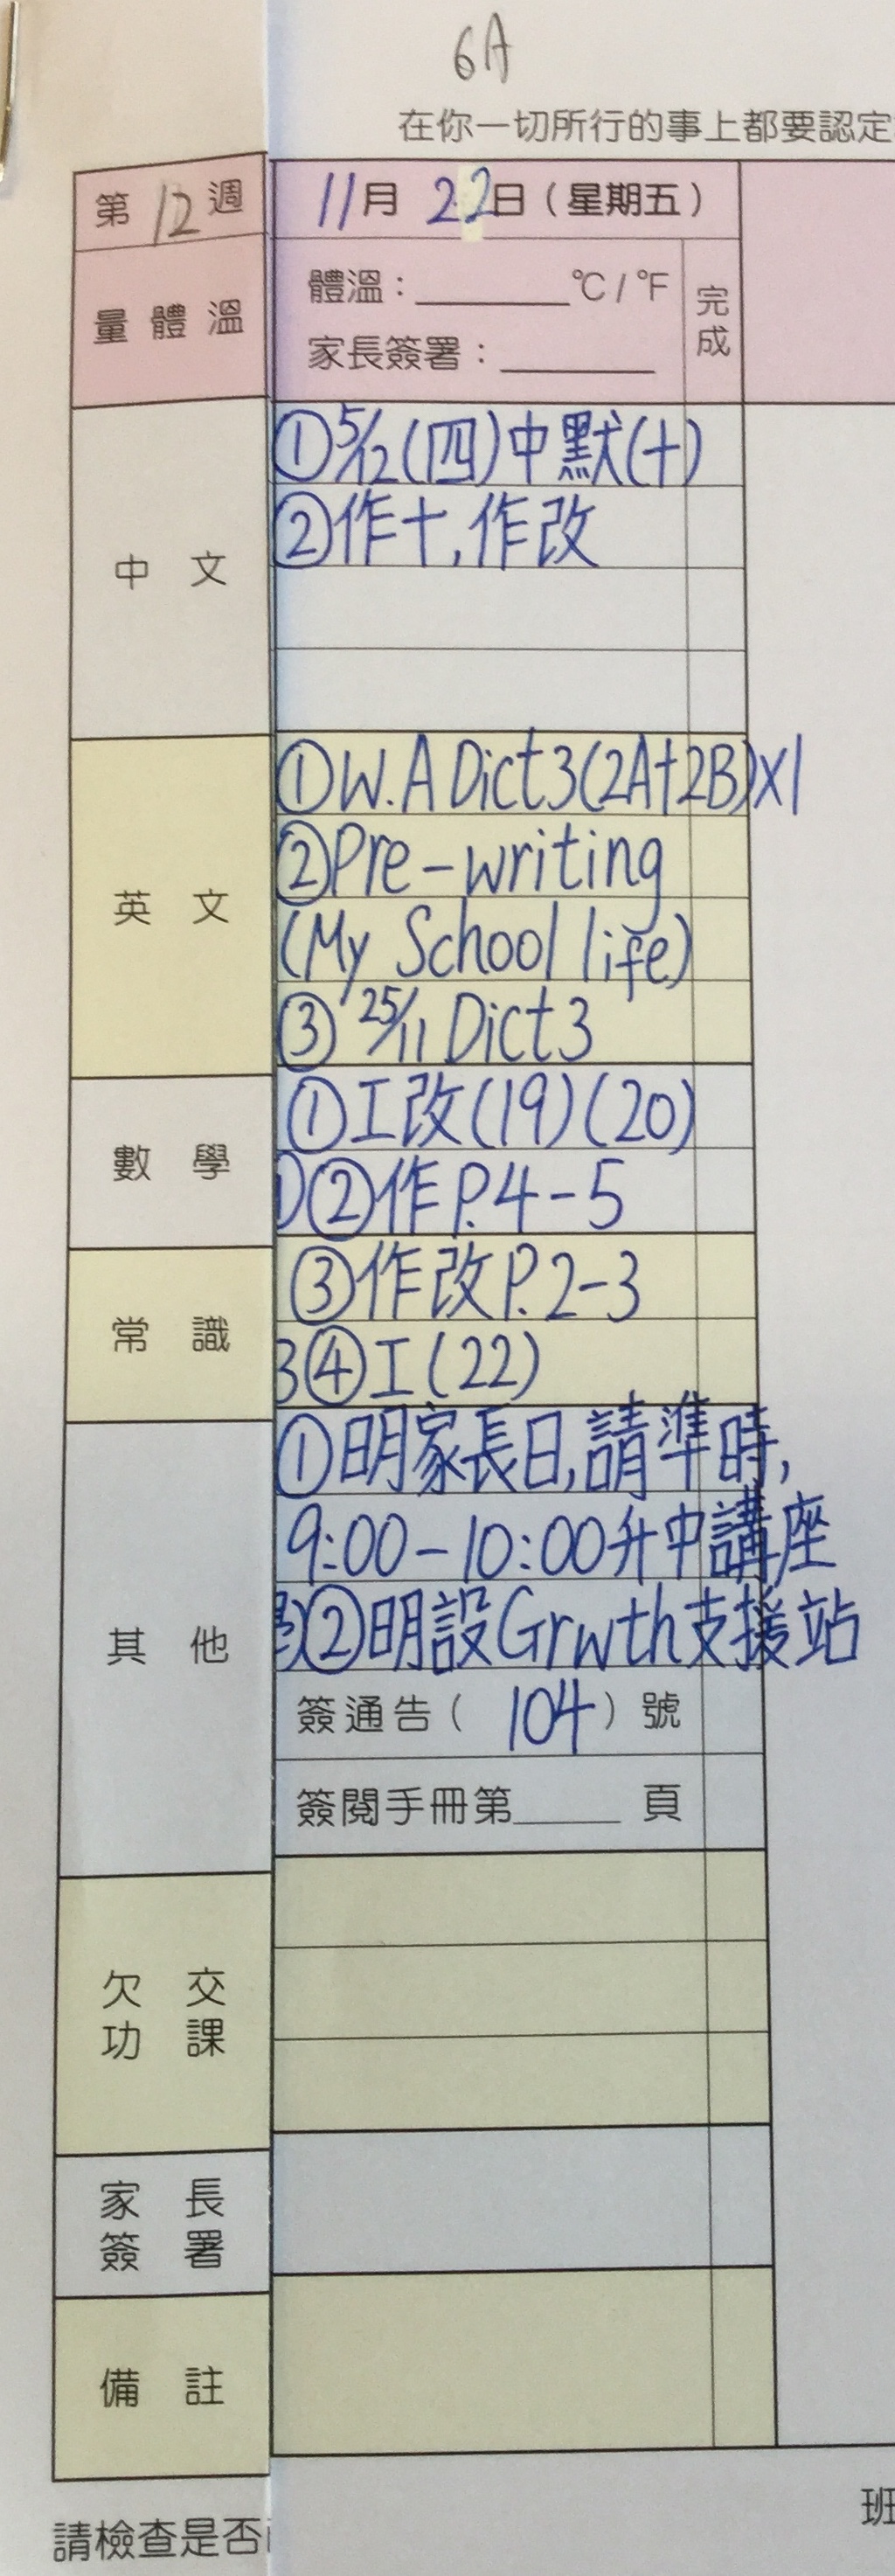 6A
在你一切所行的事上都要認定
第12週
11月22日（星期五）
量體溫
體溫：______°C / °F
家長簽署：______
完成
中文
①5/12(四)中默(十)
②作十,作改
英文
①W.A Dict3(2A+2B)x1
②Pre-writing
(My School life)
③ 25/11 Dict3
數學
①工改(19)(20)
②作P.4-5
常識
③作改P.2-3
④工(22)
其他
①明家長日,請準時,
9:00-10:00升中講座
②明設Grwth支援站
簽通告（104）號
簽閱手冊第____頁
欠交功課
家長簽署
備註
請檢查是否
班